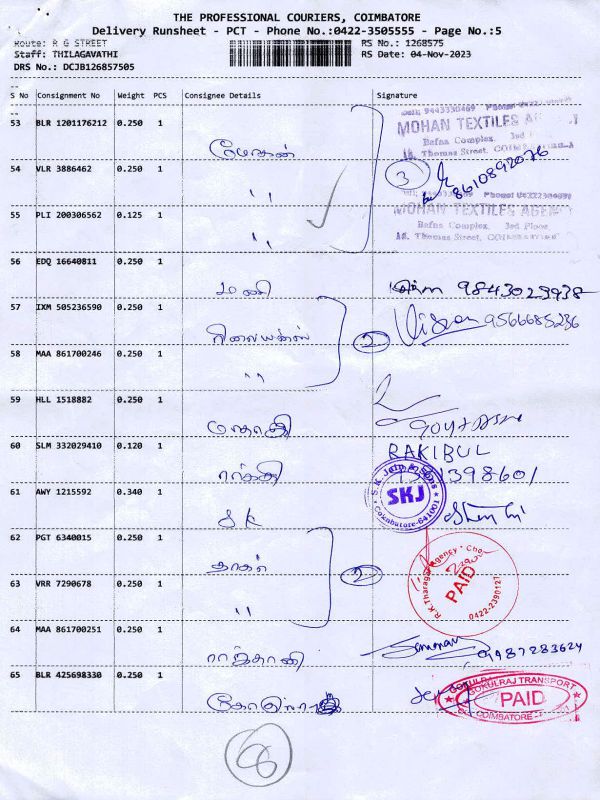 THE PROFESSIONAL COURIERS, COIMBATORE
Delivery Runsheet - PCT - Phone No.:0422-3505555 - Page No.:5
Route: R G STREET
RS No.: 1268575
Staff: THILAGAVATHI
RS Date: 04-Nov-2023
DRS No.: DCJB126857505
S No Consignment No Weight PCS Consignee Details Signature
53 BLR 1201176212 0.250 1
MOHAN TEXTILES AGENCY
Bafna Complex, 3rd Floor
Thomas Street,
மோகன்
54 VLR 3886462 0.250 1
3
8610892076
" "
MOHAN TEXTILES AGENCY
55 PLI 200306562 0.125 1
Bafna Complex, 3rd Floor
Thomas Street,
" "
56 EDQ 16640811 0.250 1
மணி
9843029938
57 IXM 505236590 0.250 1
9566685236
ரிலையன்ஸ்
2
58 MAA 861700246 0.250 1
" "
59 HLL 1518882 0.250 1
60 SLM 332029410 0.120 1
RAKIBUL
61 AWY 1215592 0.340 1
S.K. Jain & Sons
SKJ
Coimbatore-641001
SK
62 PGT 6340015 0.250 1
தாகள்
2
R.K. Tharagar Agency
PAID
0422-2390127
63 VRR 7290678 0.250 1
" "
64 MAA 861700251 0.250 1
ராஜதானி
9987283624
65 BLR 425698330 0.250 1
GOKULRAJ TRANSPORT
PAID
COIMBATORE
6